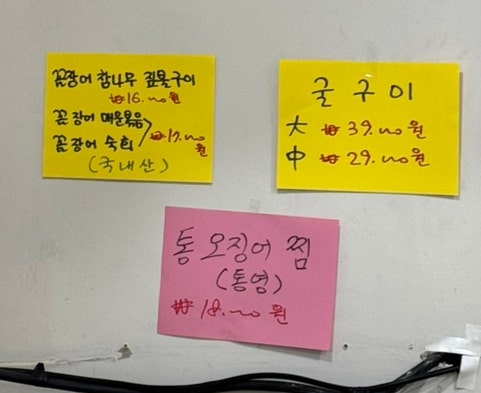 꼼장어 참나무 짚불구이
₩16.000원
꼼장어 매운볶음
꼼장어 숙회
₩17.000원
(국내산)
굴구이
大 ₩39.000원
中 ₩29.000원
통오징어찜
(통영)
₩18.000원